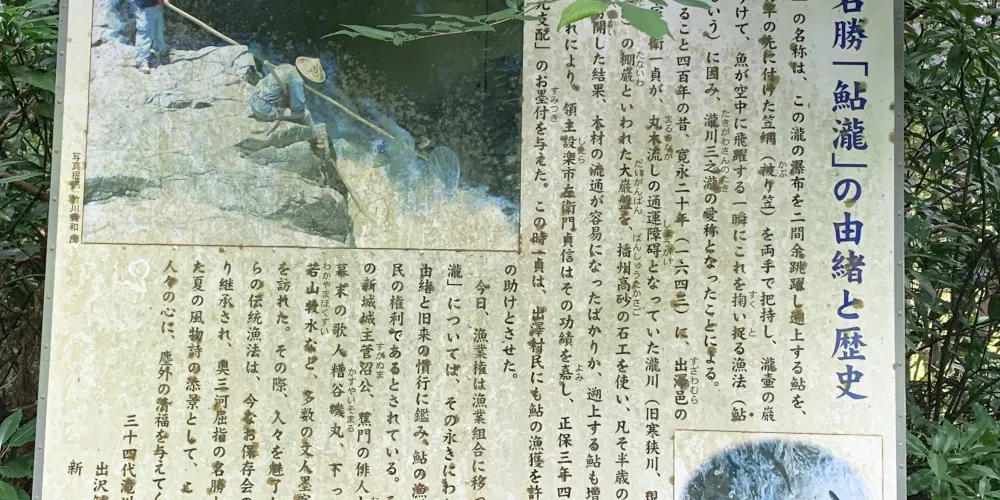 名勝「鮎滝」の由緒と歴史
の名称は、この瀧の瀑布を二間余跳躍し遡上する鮎を、
竿の先に付けた笠網(被り笠)を両手で把持し、瀧壷の巌
けて、魚が空中に飛躍する一瞬にこれを掬い捉る漁法(鮎
いう)に因み、瀧川三之瀧の愛称となったことによる。
ること四百年の昔、寛永二十年(一六四三)に、出澤邑の
衛一貞が、丸木流しの通運障碍となっていた瀧川(旧寒狭川、現
の棚巌といわれた大巌盤を、播州高砂の石工を使い、凡そ半歳の
開した結果、木材の流通が容易になったばかりか、遡上する鮎も増
れにより、領主設楽市左衛門貞信はその功績を嘉し、正保三年四
元支配」のお墨付を与えた。この時一貞は、出澤村民にも鮎の漁獲を許
の助けとさせた。
今日、漁業権は漁業組合に移っ
瀧」については、その永きにわ
由緒と旧来の慣行に鑑み、鮎の漁
民の権利であるとされている。
の新城城主菅沼公、蕉門の俳人
幕末の歌人糟谷磯丸、下っ
若山牧水など、多数の文人墨客
を訪れた。その際、人々を魅了し
らの伝統漁法は、今なお保存会の
り継承され、奥三河屈指の名勝
た夏の風物詩の添景として、
人々の心に、塵外の清福を与えてく
三十四代滝川
出沢
新
写真提供